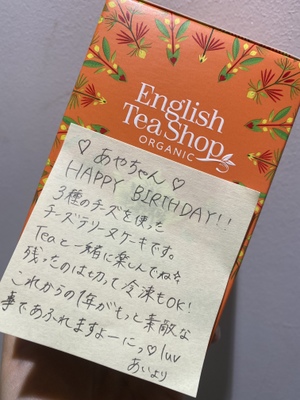 English
Tea Shop
ORGANIC
♡ あやちゃん ♡
HAPPY BIRTHDAY!!
3種のチーズを使った
チーズテリーヌケーキです。
Teaと一緒に楽しんでね☆
残ったのは切って冷凍もOK!
これからの1年がもっと素敵な
事であふれますよーにっ♡ luv
あいより